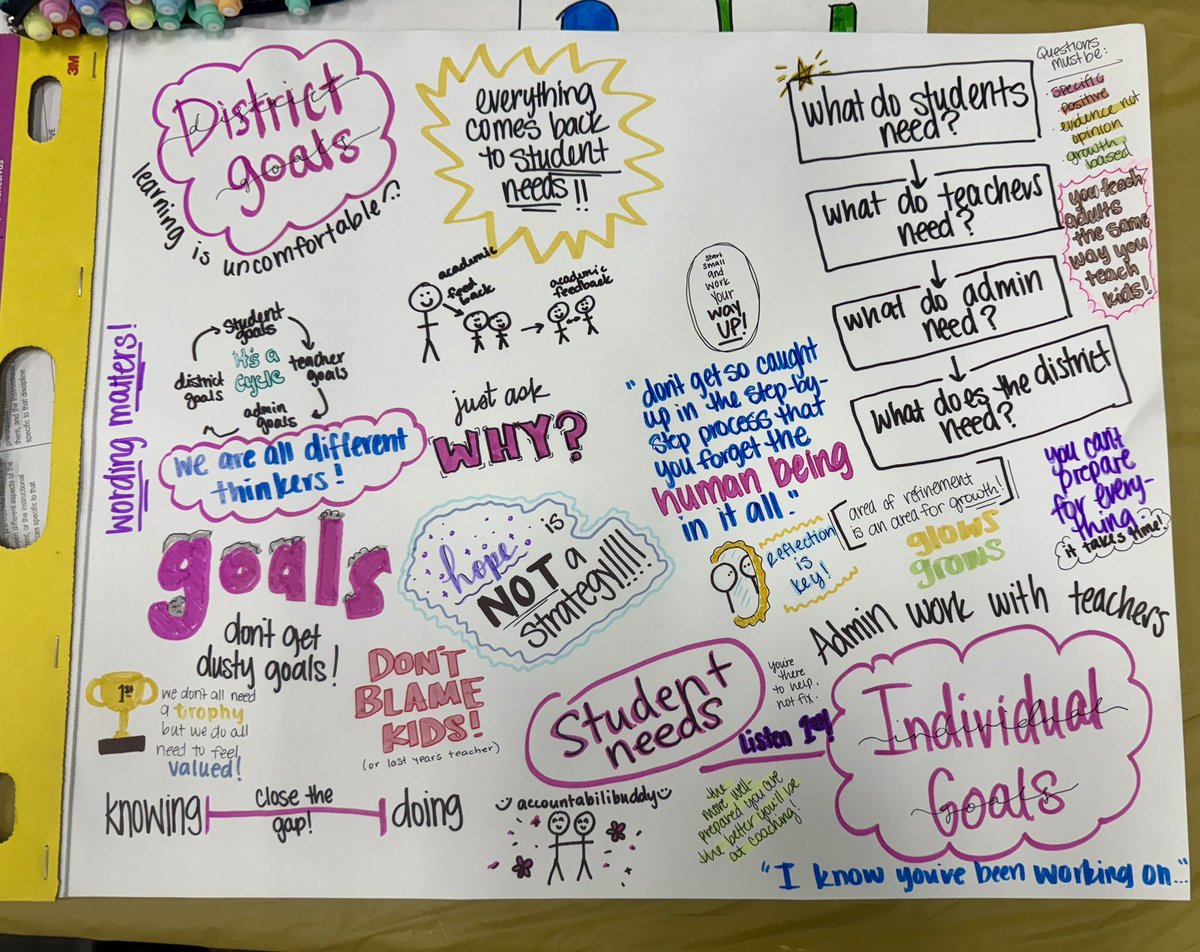 3M
District
goals
district
goals
learning is uncomfortable
everything
comes back
to student
needs!!
What do students
need?
what do teachers
need?
what do admin
need?
What does the district
need?
Questions
must be:
• specific
• positive
• evidence not
opinion
• growth
based
you teach
adults
the same
way you
teach
kids!
wording matters!
student
goals
teacher
goals
admin
goals
district
goals
it's a
cycle
academic
feed
back
academic
feedback
start
small
and
work
your
WAY
UP!
just ask
WHY?
"don't get so caught
up in the step-by-
step process that
you forget the
human being
in it all."
we are all different
thinkers!
goals
don't get
dusty goals!
hope is
NOT a
strategy!!!!
Reflection
is
key!
area of refinement
is an area for growth!
glows
grows
you can't
prepare
for every-
thing
it takes time!
Admin work with teachers
1st
we don't all need
a trophy
but we do all
need to feel
valued!
DON'T
BLAME
KIDS!
(or last year's teacher)
Student
needs
you're
there
to help,
not fix.
Listen 1st!
Individual
Goals
individual
goals
knowing
close the
gap!
doing
accountabilibuddy
the
more well-
prepared you are
the better you'll be
at coaching!
"I know you've been working on..."